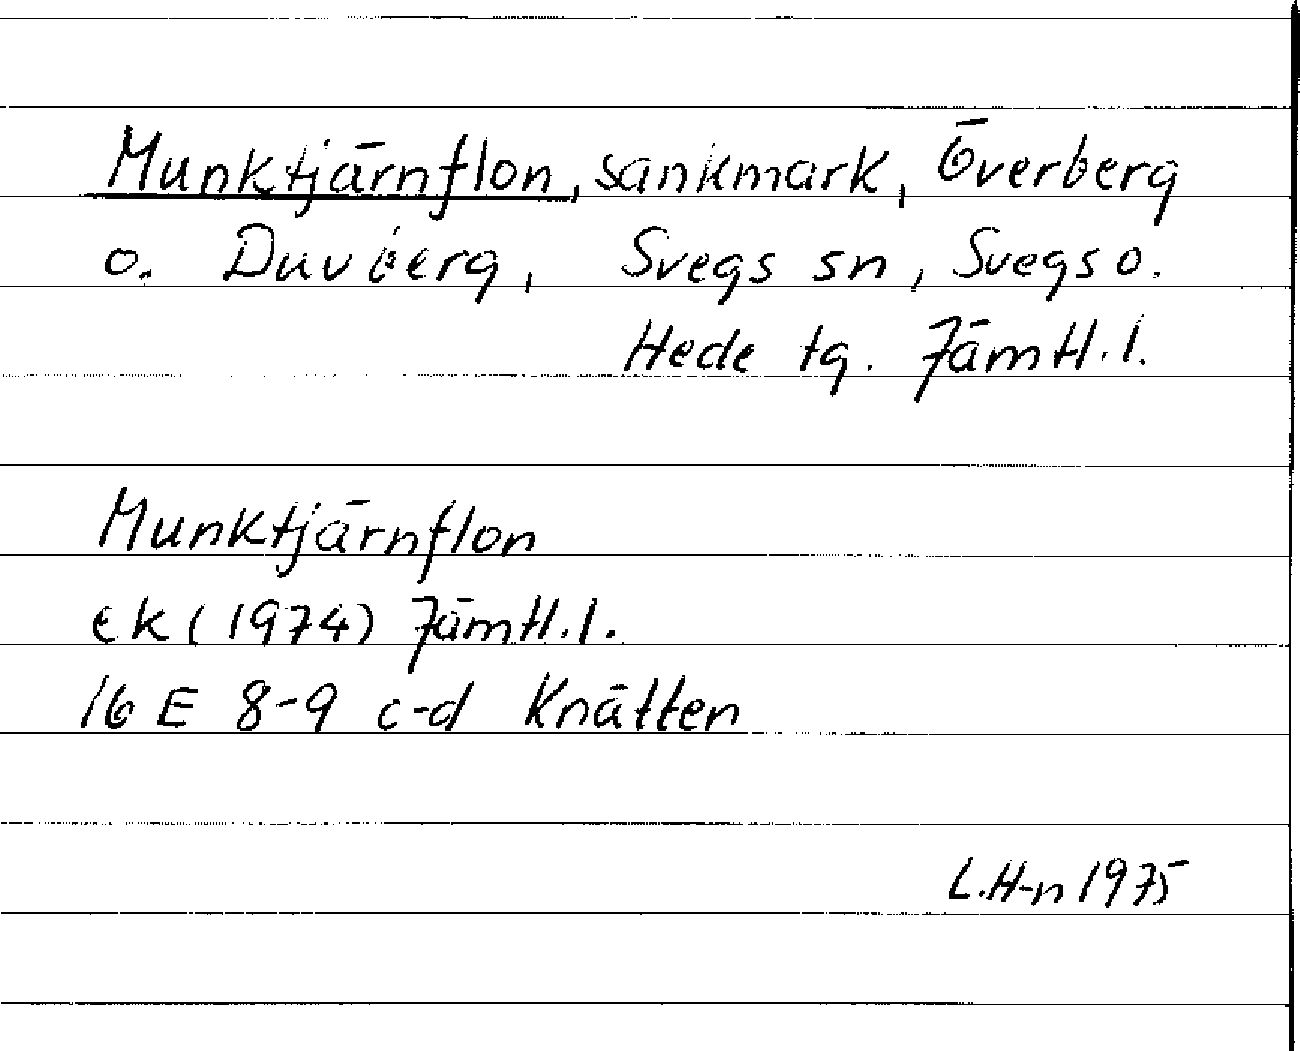 Munktjärnflon, sankmark, Överberg
o. Duvberg, Svegs sn, Svegs o.
Hede tg. Jämtl. l.
Munktjärnflon
ek (1974) Jämtl. l.
16 E 8-9 c-d Knätten
L. H-n 1975